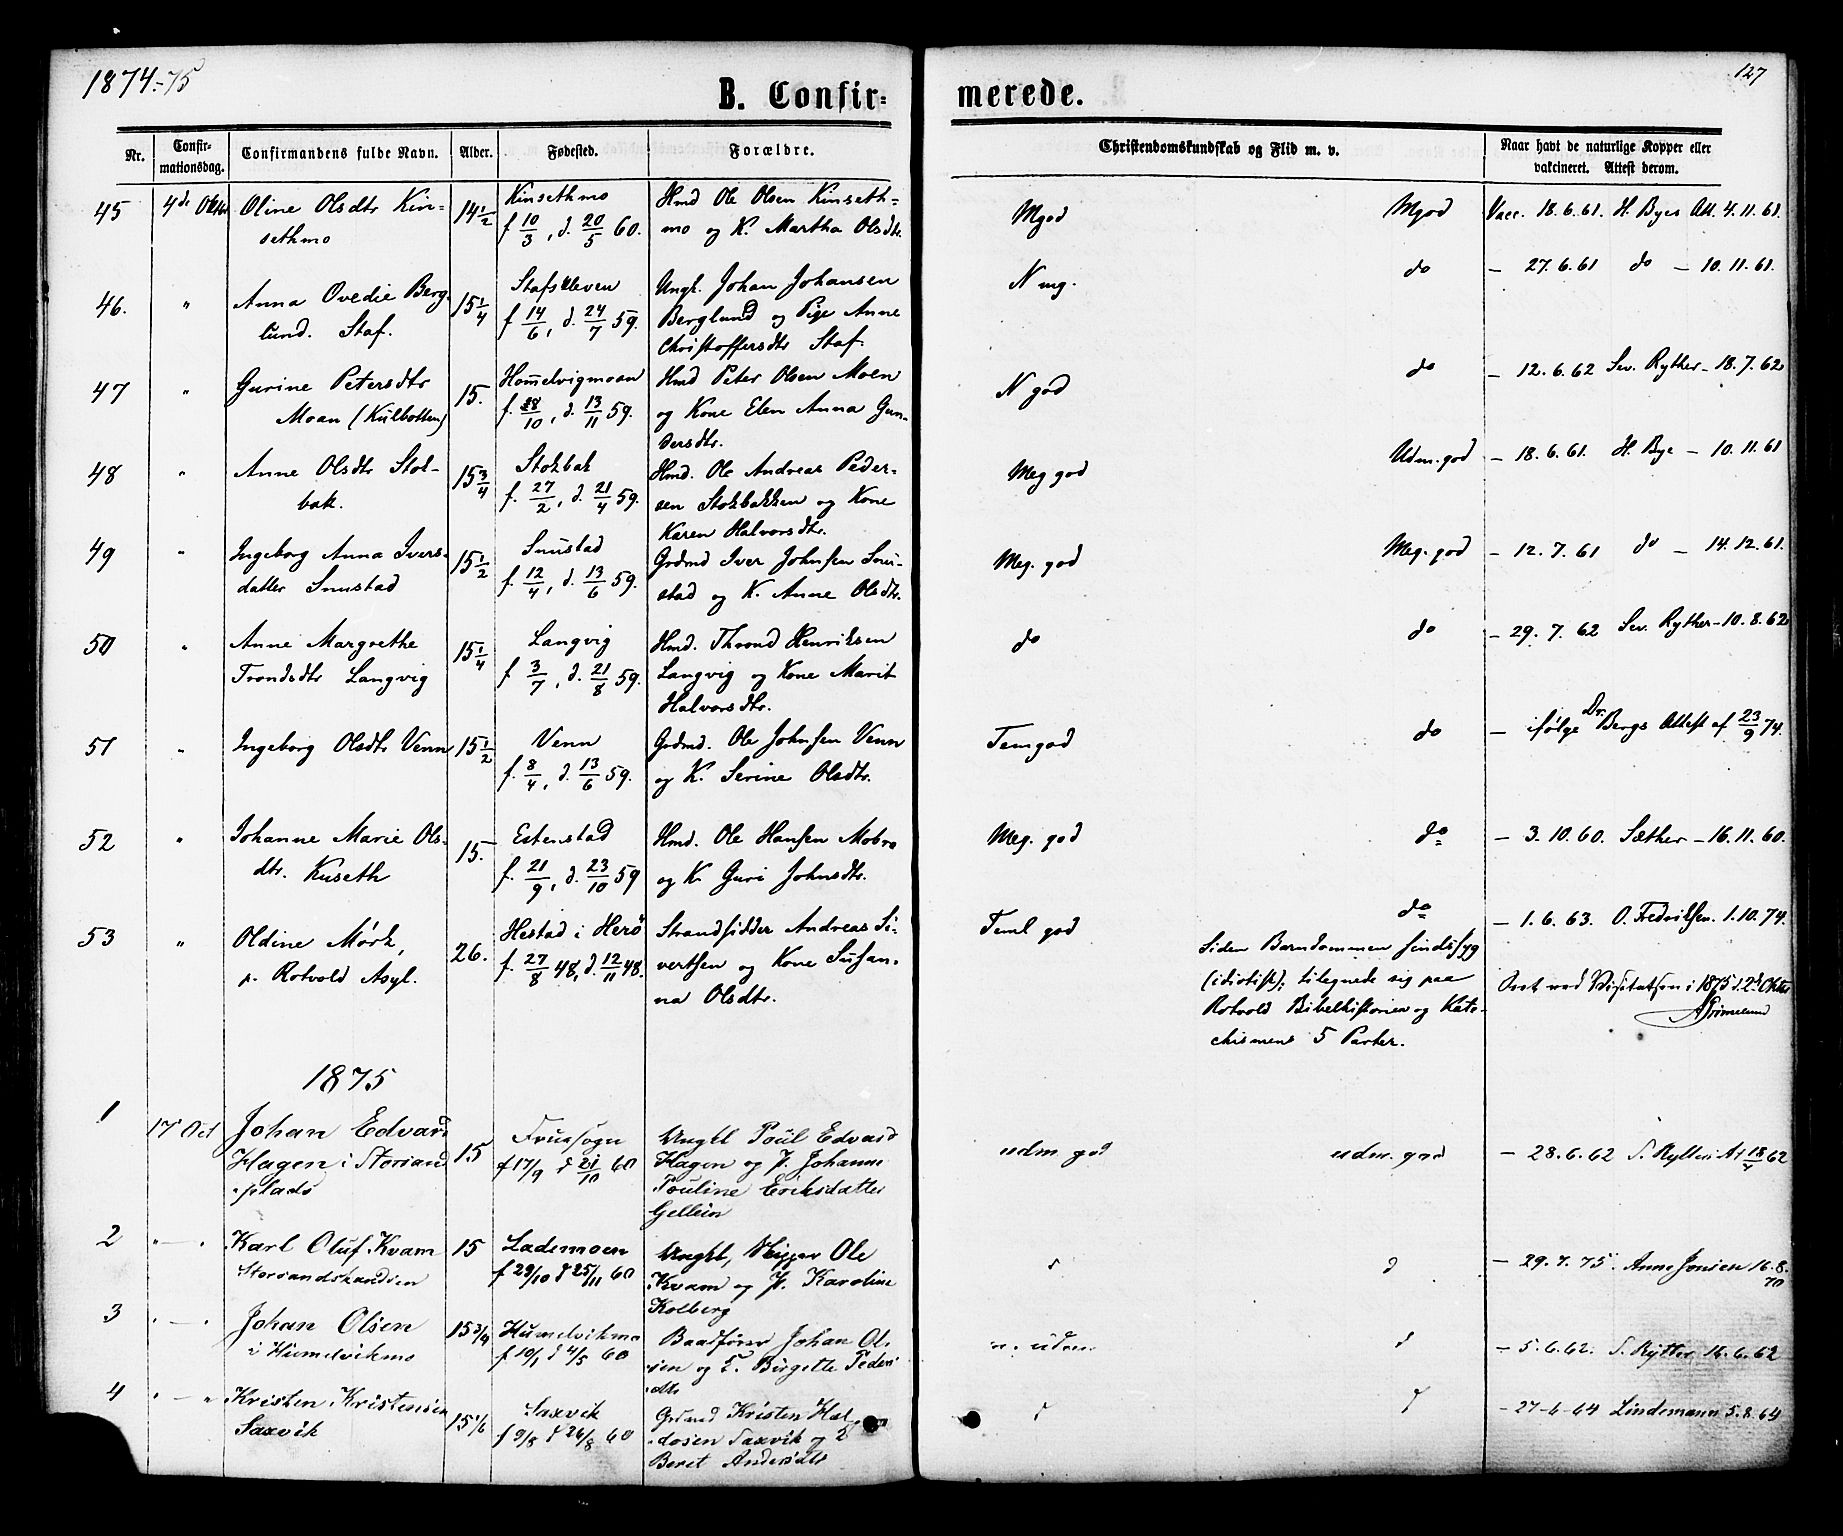 1874-75
127
B. Confir-
merede.
Nr.
Confir-
mationsdag.
Confirmandens fulde Navn.
Alder.
Fødested.
Forældre.
Christendomskundskab og Flid m. v.
Naar havt de naturlige Kopper eller
vakcineret. Attest derom.
45 4de Oktbr Oline Olsdtr Kin- 14 1/2 Kinsethmo Hmd Ole Olsen Kinseth- Mgod Mgod Vacc. 18.6.61. H. Byes Att. 4.11.61.
sethmo f 10/3, d. 20/5 60. mo og K. Martha Olsdtr.
46. " Anna Ovedie Berg- 15 1/4 Stafskleven Ungk. Johan Johansen N mg. do - 27.6.61 do - 10.11.61.
lund. Staf. f 14/6, d. 24/7 59. Berglund og Pige Anne
Christoffersdtr Staf.
47 " Gurine Petersdtr 15. Hommelvigmoan Hmd Peter Olsen Moen N god do - 12.6.62 Sev. Ryther - 18.7.62
Moan (Kulbotten) f. /10, d. 13/11 59. og Kone Elen Anna Gun-
dersdtr.
48 " Anne Olsdtr Stok- 15 3/4 Stokbak Hmd. Ole Andreas Peder- Meg god Udm. god - 18.6.61. H. Bye - 10.11.61
bak. f. 27/2, d. 21/4 59. sen Stokbakken og Kone
Karen Halvorsdtr.
49 " Ingeborg Anna Ivers- 15 1/2 Snustad Grdmd Iver Johnsen Snu- Meg. god Meg. god - 12.7.61 do - 14.12.61.
datter Snustad f. 12/4, d. 13/6 59. stad og K. Anne Olsdtr.
50 " Anne Margrethe 15 1/4 Langvig Hmd. Thrond Henriksen do do - 29.7.62 Sev. Ryther - 10.8.62
Trondsdtr Langvig f 3/7, d. 21/8 59. Langvig og Kone Marit
Halvorsdtr.
51 " Ingeborg Olsdtr Venn 15 1/2 Venn Grdmd. Ole Johnsen Venn Temgod do - ifølge Dr. Bergs Attest af 23/9 74.
f. 8/4, d. 13/6 59. og K. Serine Olsdtr.
52 " Johanne Marie Ols- 15. Estenstad Hmd. Ole Hansen Mobro Meg. god do - 3.10.60. Sæther - 16.11.60.
dtr. Kuseth f. 21/9, d. 23/10 59 og K Guri Johnsdtr.
53 " Oldine Mørk, 26. Hestad i Herö Strandsidder Andreas Si- Teml god do - 1.6.63. O. Fredriksen. 1.10.74.
p. Rotvold Asyl. f. 27/8 48, d. 12/11 48. vertsen og Kone Susan- Siden Barndommen sindssyg
na Olsdtr. (idiotisk); tilegnede sig paa ved Visitatsen i 1875 d. 2d Oktbr
Rotvold Bibelhistorien og Kate- Grimelund
chismens 5 Parter.
1875
1 17 Oct Johan Edvard 15 Fruesogn Ungkl Poul Edvard udm god udm. god - 28.6.62 S. Rytter At 18/7 62
Hagen i Storsand f 17/9 d 21/10 60 Hagen og p. Johanne
plads Pouline Eriksdatter
Gellein
2 " Karl Oluf Kvam 15 Lademoen Ungkl, Ole - 29.7.75. Anne Jonsen 16.8.
Storsandstranden f 29/10 d 25/11 60 Kvam og p. Karoline 70
Kolberg
3 " Johan Olsen 15 3/4 Humelvikmo Baadfører Johan Ol- d - 5.6.62. S. Rytter 16.6.62
i Humelvikmo f 10/1 d 4/5 60 sen og E. Birgette Peders-
dtr
4 " Kristen Kristensen 15 1/6 Saxvik Grdmd Kristen Hal- - 27-6-64 Lindemann 5.8.64
Saxvik f 9/8 d 26/8 60 dosen Saxvik og E
Beret Andersdtr